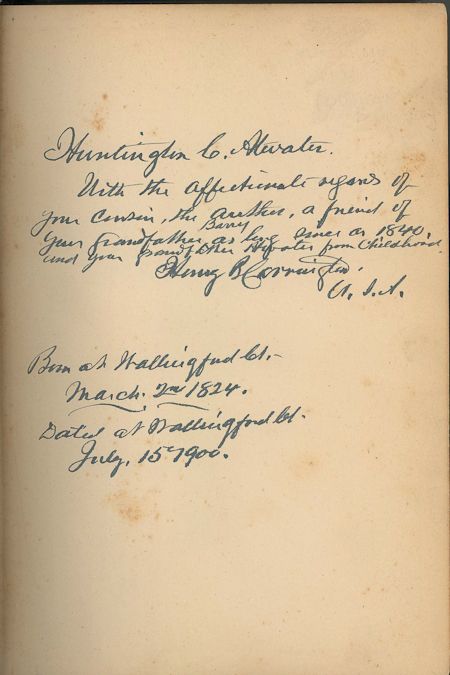 Huntington C. Atwater.
With the affectionate regards of
your cousin, the author, a friend of
Barry
your Grandfather as long since as 1840,
and your grandfather Atwater from Childhood.
Henry B. Carrington.
U.S.A.
Born at Wallingford Ct.-
March. 2nd 1824.
Dated at Wallingford Ct.
July, 15th 1900.